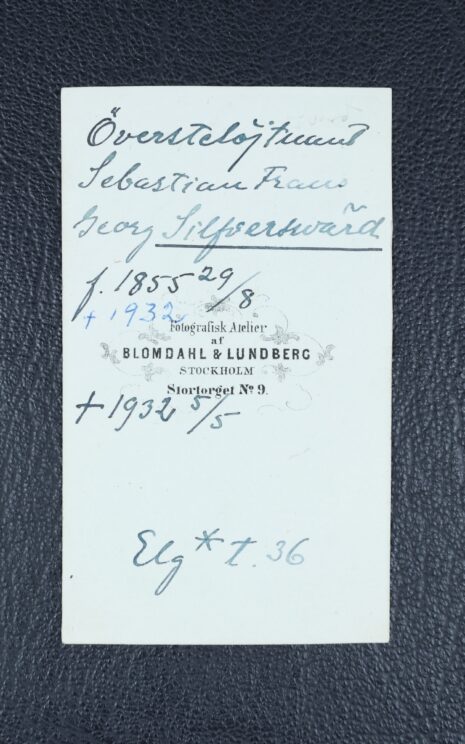 Överstelöjtnant
Sebastian Frans
Georg Silfverswärd
f. 1855 29/8
+ 1932
Fotografisk Atelier
af
BLOMDAHL & LUNDBERG
STOCKHOLM
Stortorget No 9.
+ 1932 5/5
Elg* t. 36